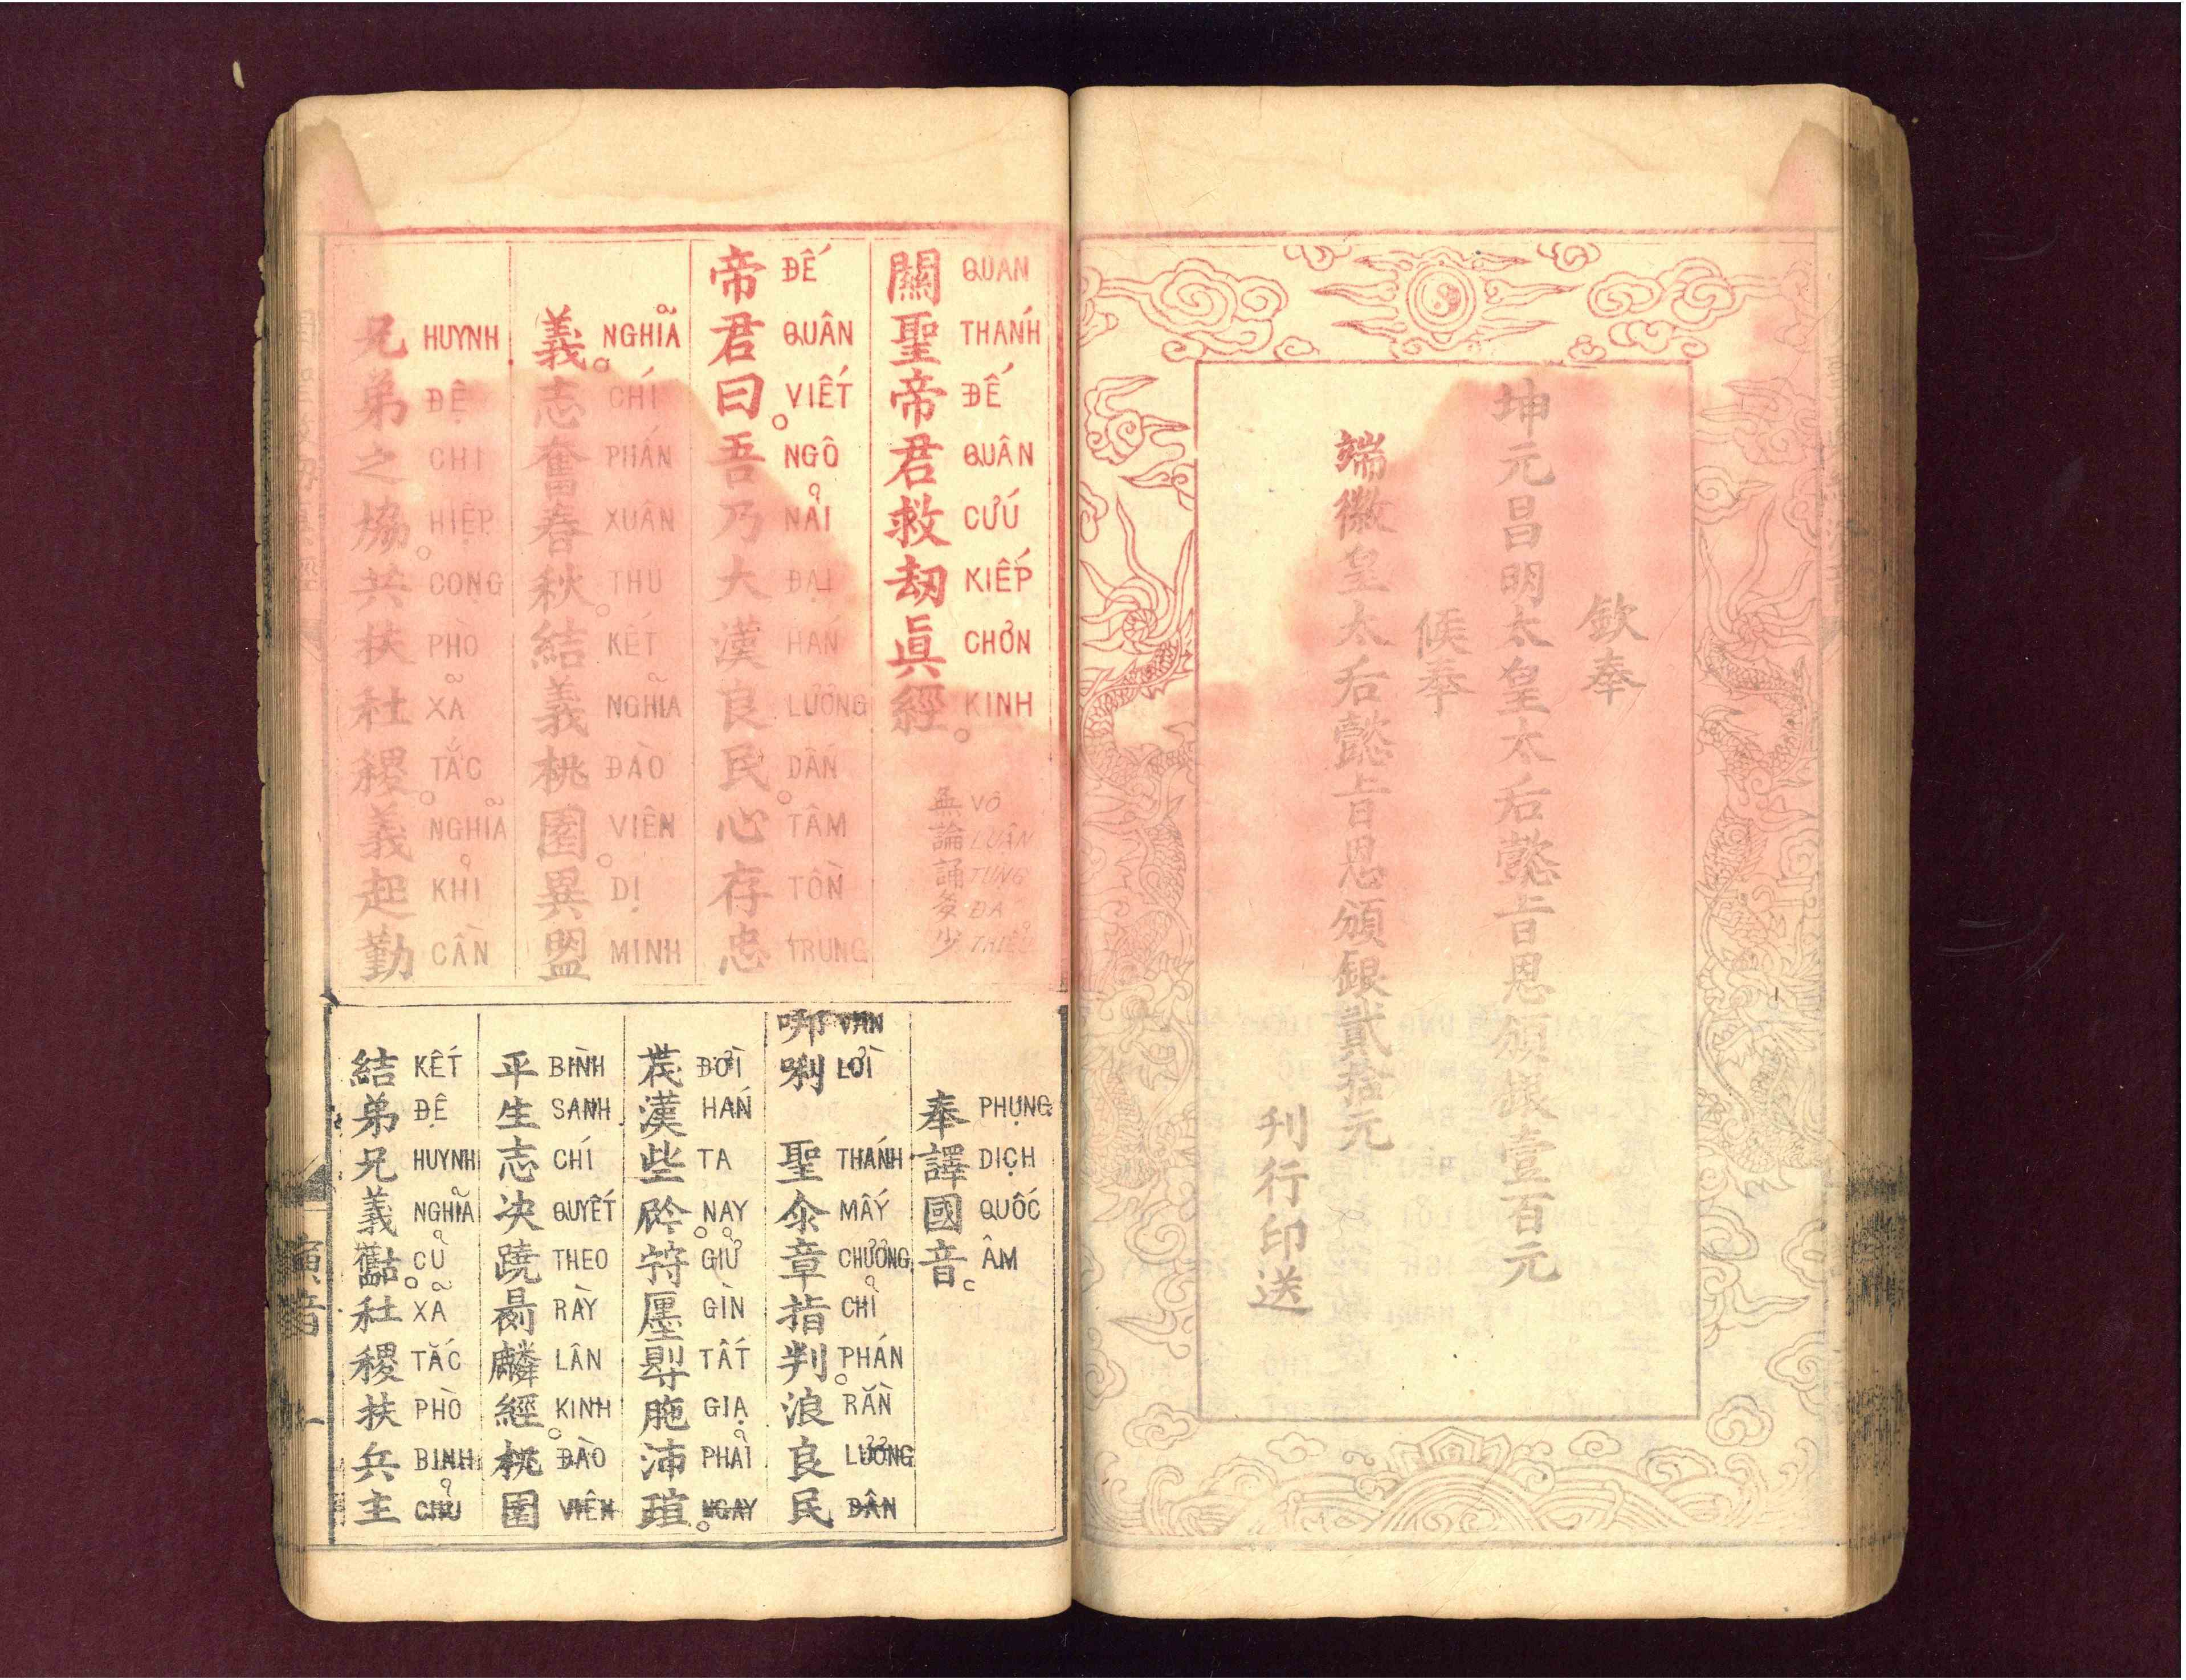 欽奉
坤元昌明太皇太后懿旨恩頒銀壹百元
候奉
端徽皇太后懿旨恩頒銀貳拾元
刊行印送
關聖帝君救刼眞經
QUAN THÁNH ĐẾ QUÂN CỨU KIẾP CHƠN KINH
無論誦多少
VÔ LUẬN TỤNG ĐA THIỂU
帝君曰吾乃大漢良民心存忠
ĐẾ QUÂN VIẾT NGÔ NẢI ĐẠI HÁN LƯƠNG DÂN TÂM TỒN TRUNG
義志奮春秋結義桃園異盟
NGHĨA CHÍ PHẤN XUÂN THU KẾT NGHĨA ĐÀO VIÊN DỊ MINH
兄弟之協共扶社稷義起勤
HUYNH ĐỆ CHI HIỆP CỌNG PHÒ XÃ TẮC NGHĨA KHỈ CẦN
奉譯國音
PHỤNG DỊCH QUỐC ÂM
唎聖尒章指判浪良民
VÂN LỜI THÁNH MẤY CHƯƠNG CHỈ PHÁN RẰN LƯƠNG DÂN
漢些
ĐỜI HÁN TA NAY GIỬ GÌN TẤT GIẠ PHẢI NGAY
平生志决蹺麟經桃園
BÌNH SANH CHÍ QUYẾT THEO RÀY LÂN KINH ĐÀO VIÊN
結弟兄義社稷扶兵主
KẾT ĐỆ HUYNH NGHĨA CỦ XÃ TẮC PHÒ BINH CHỦ
演音